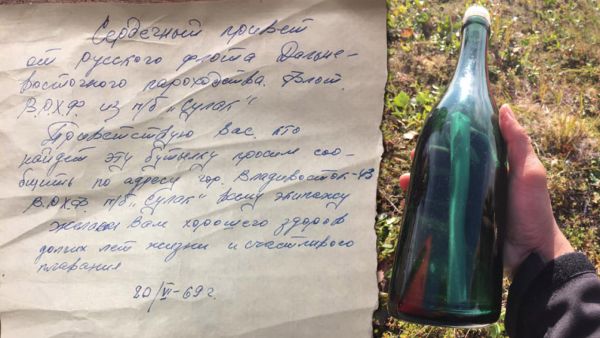 Сердечный привет
от русского флота Дальне-
восточного пароходства. Флот.
В.О.Х.Ф. из п/б "Сулак"
Приветствую Вас, кто
найдет эту бутылку просим соо-
бщить по адресу гор. Владивосток-43
В.О.Х.Ф. п/б "Сулак" всему экипажу
желаем Вам хорошего здоров
долгих лет жизни и счастливого
плавания
20/VI-69 г.